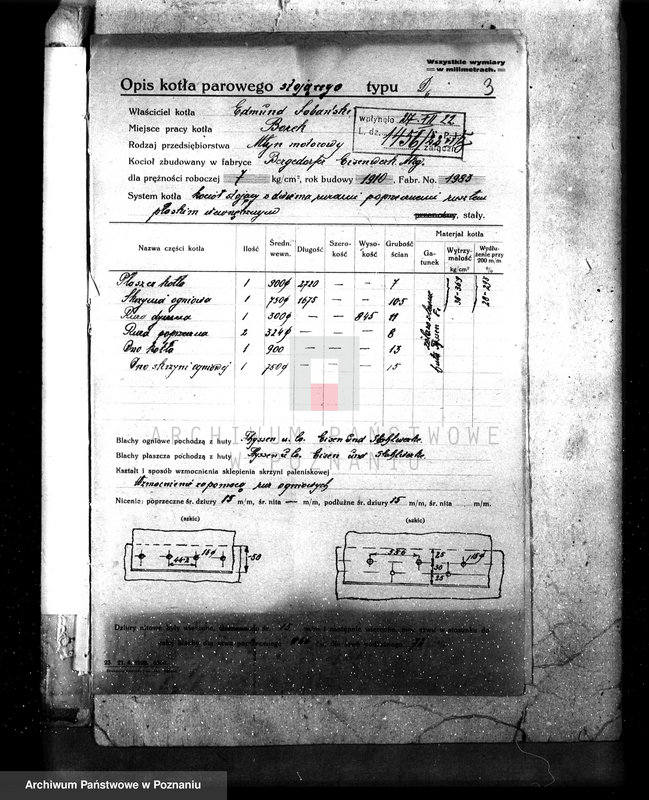 Wszystkie wymiary
w milimetrach.
Opis kotła parowego stojącego typu 3
Właściciel kotła Edmund Sobański
Miejsce pracy kotła Borek
wpłynęło 17 · VII 22
L. dz. 1456
załączn.
Rodzaj przedsiębiorstwa Młyn motorowy
Kocioł zbudowany w fabryce Bergedorfer Eisenwerk Akg.
dla prężności roboczej 7 kg/cm², rok budowy 1910, Fabr. No. 1993
System kotła kocioł stojący z dwiema rurami poprzecznemi
płaskim wewnętrznym przenośny, stały.
Nazwa części kotła Ilość Średn. wewn. Długość Szerokość Wysokość Grubość ścian Materjał kotła
Gatunek Wytrzymałość kg/cm² Wydłużenie przy 200 m/m %
Płaszcz kotła 1 900 ϕ 2720 — — 7
Skrzynia ogniowa 1 750 ϕ 1675 — — 10,5
Rura dymna 1 300 ϕ — — 845 11
Rura poprzeczna 2 324 ϕ — — 8
Dno kotła 1 900 — — 13
Dno skrzyni ogniowej 1 750 ϕ — — 15
ARCHIWUM PAŃSTWOWE
W POZNANIU
Blachy ogniowe pochodzą z huty Thyssen u. Co. Eisen und Stahlwerke.
Blachy płaszcza pochodzą z huty Thyssen u. Co. Eisen und Stahlwerke.
Kształt i sposób wzmocnienia sklepienia skrzyni paleniskowej
Wzmocnienie zapomocą rur ogniowych
Nicenie: poprzeczne śr. dziury 15 m/m, śr. nita — m/m, podłużne śr. dziury 15 m/m, śr. nita m/m.
(szkic) (szkic)
50
25
30
25
Dziury nitowe były wiercone, śr. 15 m/m i następnie wiercone, moc szwu w stosunku do
całej blachy, dla szwu poprzecznego %, dla szwu podłużnego %.
Archiwum Państwowe w Poznaniu